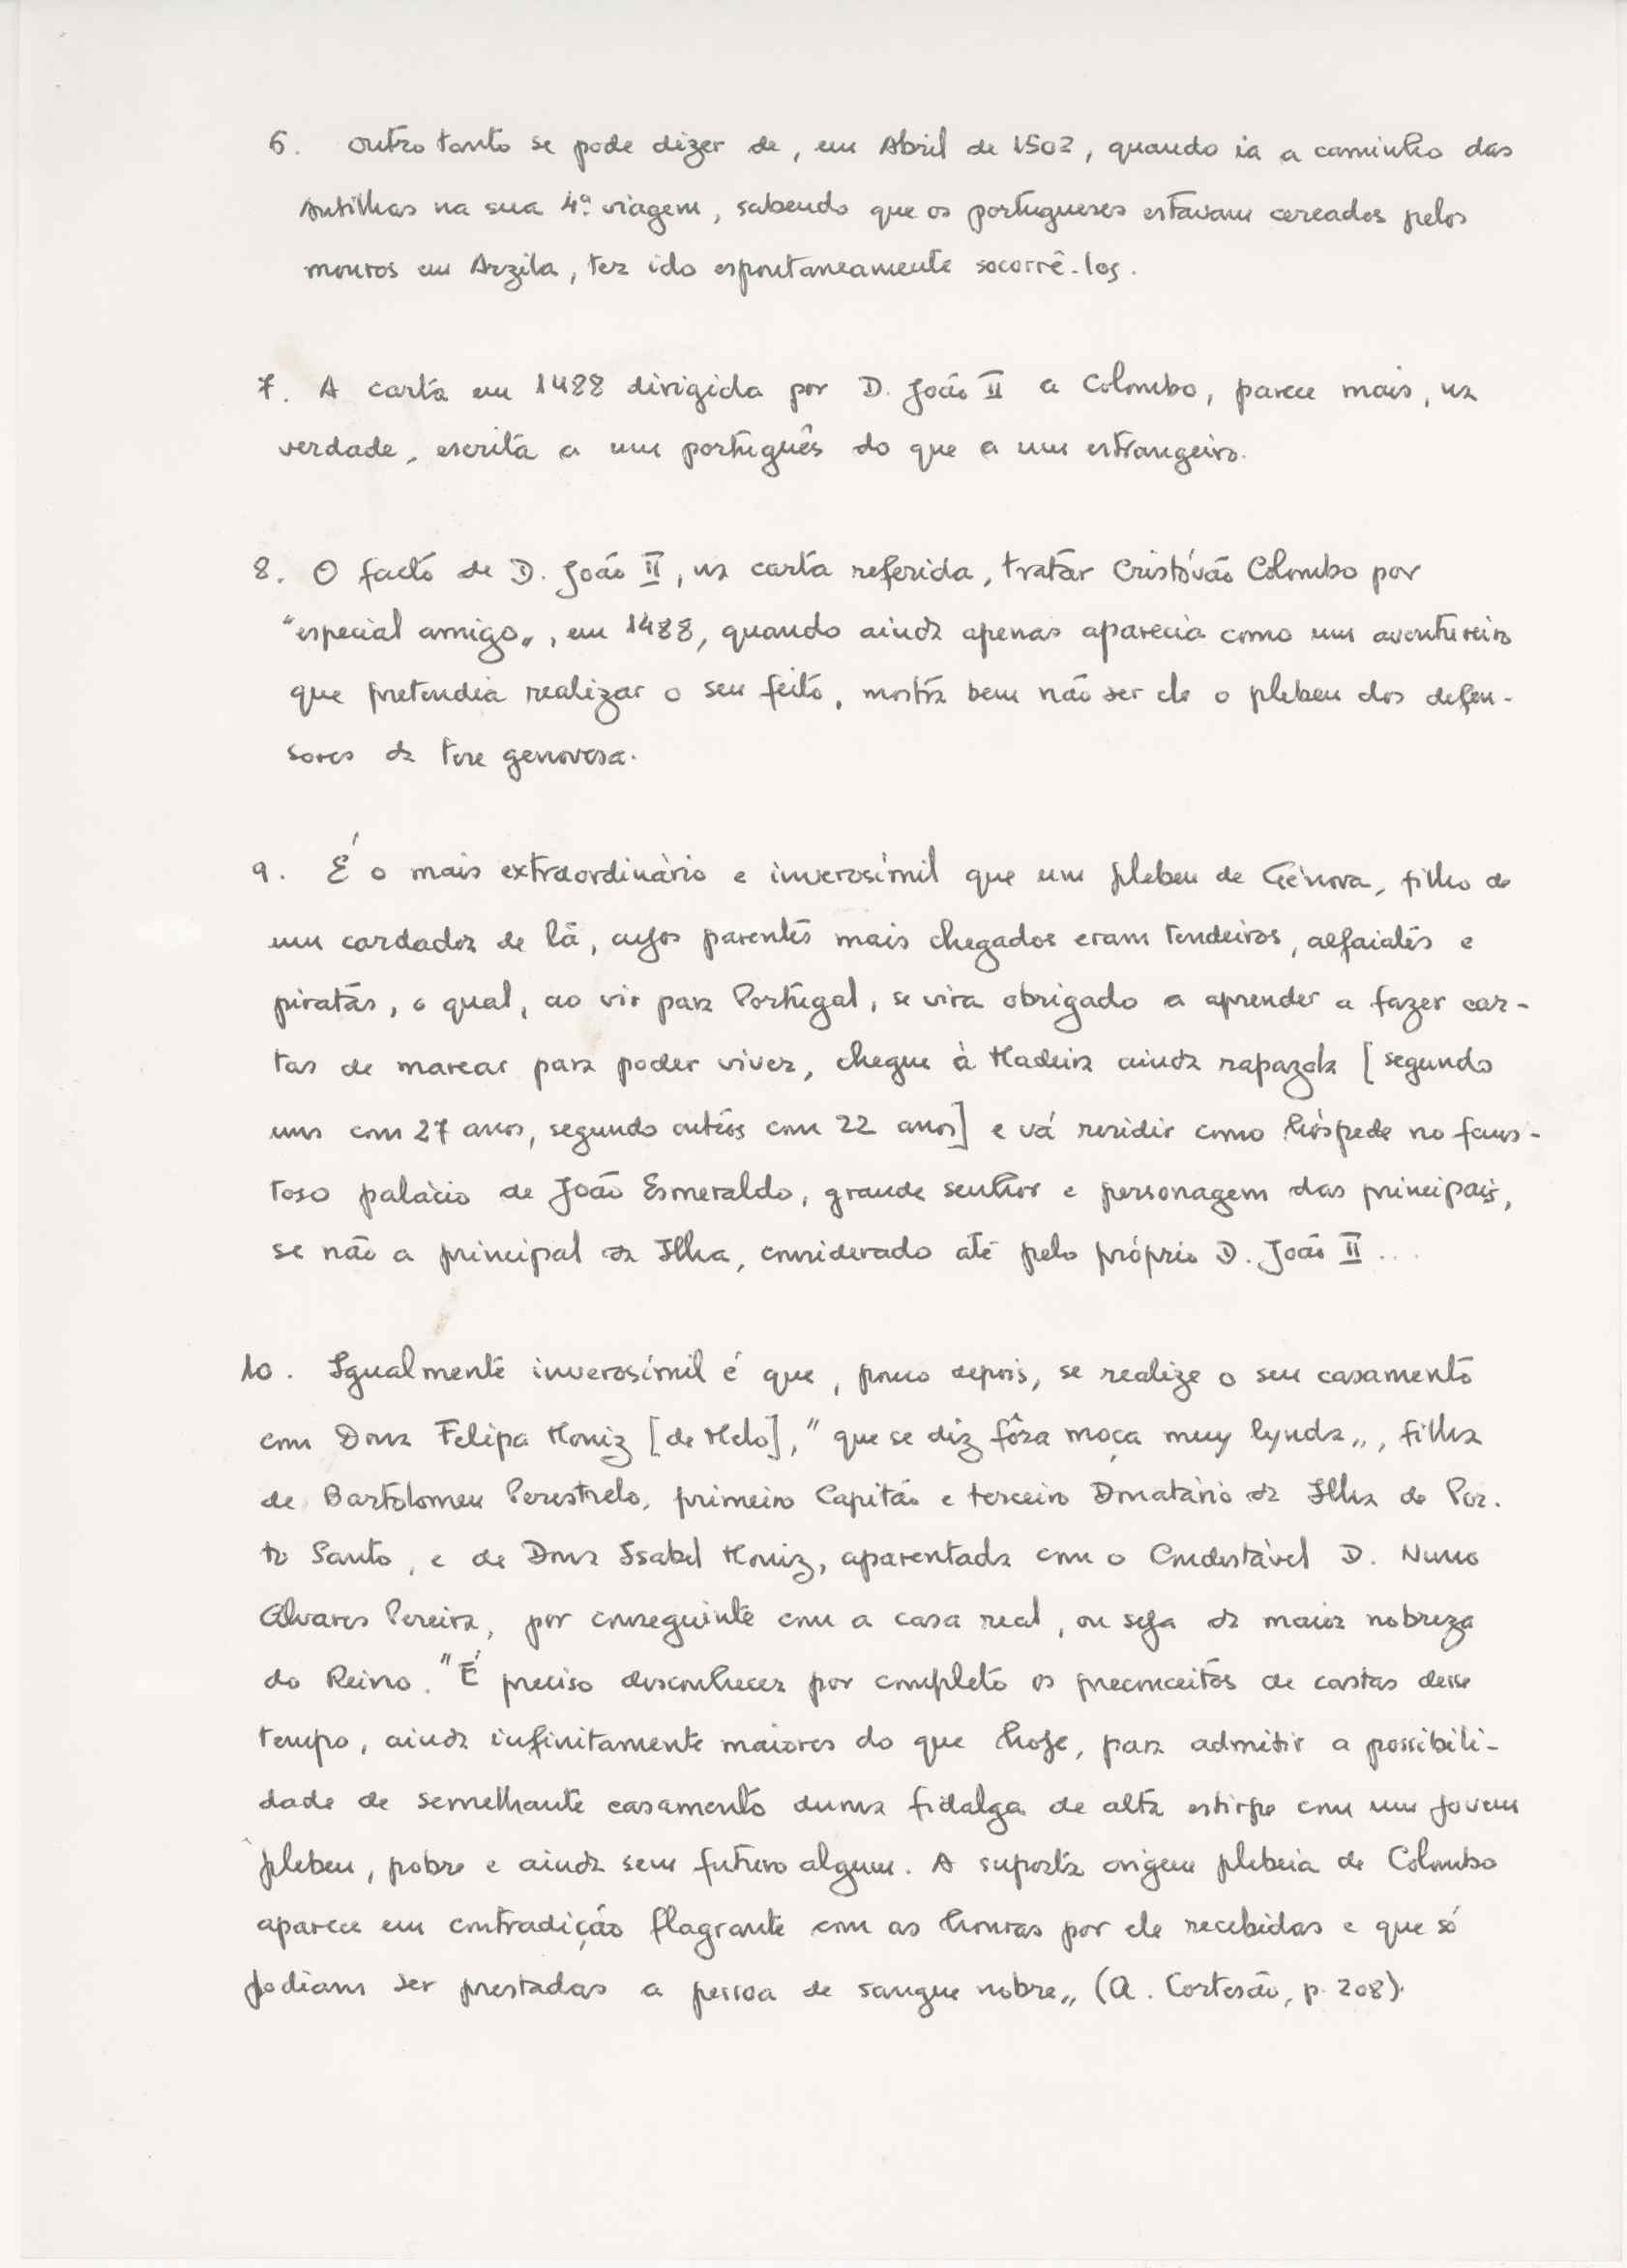 6. Outro tanto se pode dizer de, em Abril de 1502, quando ia a caminho das
Antilhas na sua 4ª viagem, sabendo que os portugueses estavam cercados pelos
mouros em Arzila, ter ido espontaneamente socorrê-los.
7. A carta em 1488 dirigida por D. João II a Colombo, parece mais, na
verdade, escrita a um português do que a um estrangeiro.
8. O facto de D. João II, na carta referida, tratar Cristóvão Colombo por
"especial amigo", em 1488, quando ainda apenas aparecia como um aventureiro
que pretendia realizar o seu feito, mostra bem não ser ele o plebeu dos defen-
sores da tese genovesa.
9. É o mais extraordinário e inverosímil que um plebeu de Génova, filho de
um cardador de lã, cujos parentes mais chegados eram tendeiros, alfaiates e
piratas, o qual, ao vir para Portugal, se vira obrigado a aprender a fazer car-
tas de marear para poder viver, chegue à Madeira ainda rapazola [segundo
uns com 27 anos, segundo outros com 22 anos] e vá residir como hóspede no faus-
toso palácio de João Esmeraldo, grande senhor e personagem das principais,
se não a principal da Ilha, considerado até pelo próprio D. João II...
10. Igualmente inverosímil é que, pouco depois, se realize o seu casamento
com Dona Felipa Moniz [de Melo], "que se diz fôra moça muy lynda", filha
de Bartolomeu Perestrelo, primeiro Capitão e terceiro Donatário da Ilha de Por-
to Santo, e de Dona Isabel Moniz, aparentada com o Condestável D. Nuno
Alvares Pereira, por conseguinte com a casa real, ou seja da maior nobreza
do Reino. "É preciso desconhecer por completo os preconceitos de castas desse
tempo, ainda infinitamente maiores do que hoje, para admitir a possibili-
dade de semelhante casamento duma fidalga de alta estirpe com um jovem
plebeu, pobre e ainda sem futuro algum. A suposta origem plebeia de Colombo
aparece em contradição flagrante com as honras por ele recebidas e que só
podiam ser prestadas a pessoa de sangue nobre" (A. Cortesão, p. 208).